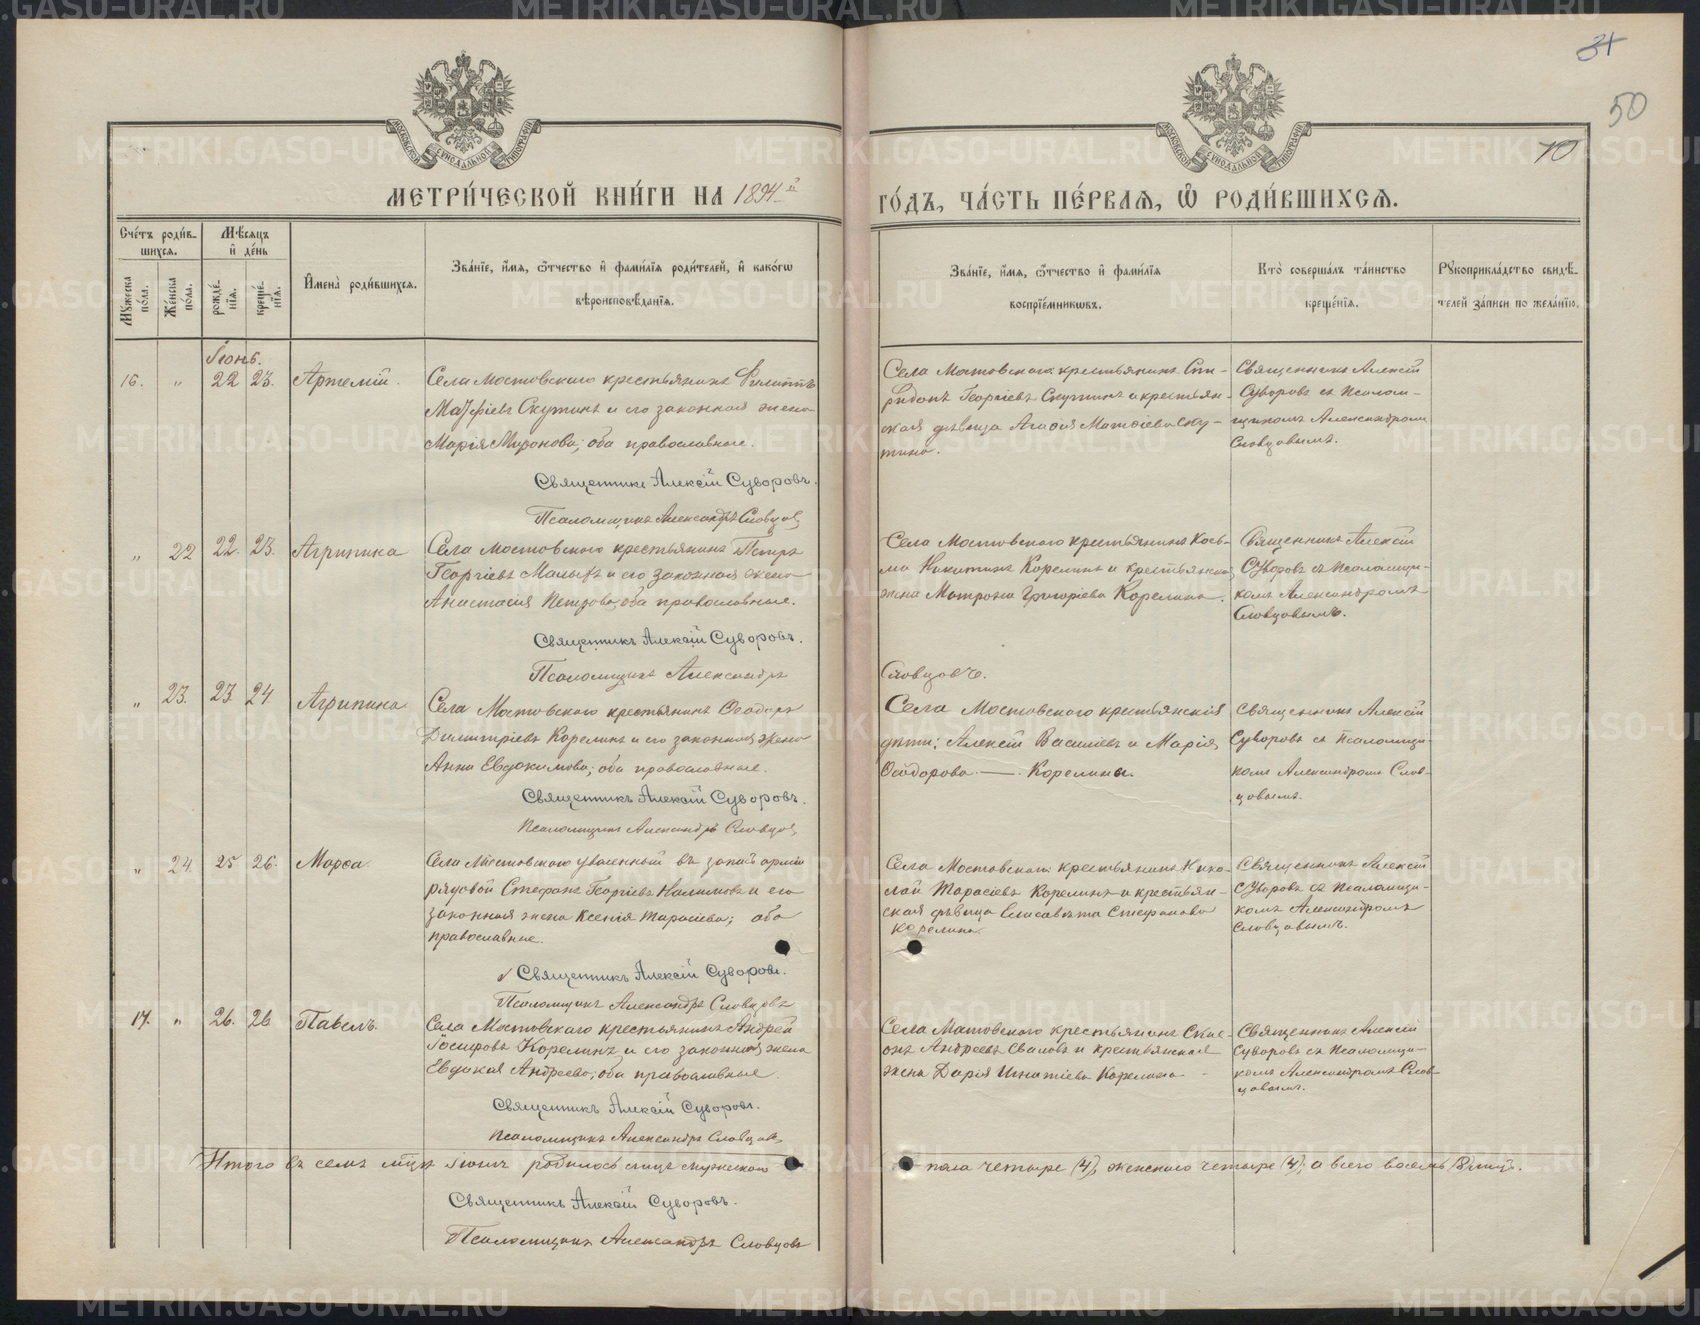 31
50
10
МОСКОВСКОЙ СУНОДАЛЬНОЙ ТИПОГРАФІИ
МОСКОВСКОЙ СУНОДАЛЬНОЙ ТИПОГРАФІИ
МЕТРИ́ЧЕСКОЙ КНИ́ГИ НА 1894й
ГО́ДЪ, ЧА́СТЬ ПЕ́РВАЯ, Ѡ РОДИ́ВШИХСЯ.
Сче́тъ роди́в-
шихся.
Мꙋжеска по́ла.
Же́нска по́ла.
Мѣ́сяцъ
и҆ де́нь
рожде́-
нїя.
креще́-
нїя.
И҆мена̀ роди́вшихся.
Зва́нїе, и҆́мя, ѻ҆́тчество и҆ фами́лїя роди́телей, и҆ како́гѡ
вѣроисповѣ́данїя.
Зва́нїе, и҆́мя, ѻ҆́тчество и҆ фами́лїя
воспрїе́мникѡвъ.
Кто̀ соверша́лъ та́инство
креще́нїя.
Рꙋкоприкла́дство свидѣ́-
телей за́писи по жела́нїю.
Іюнь.
16. " 22 23. Артемій.
Села Мостовскаго крестьянинъ Филиппъ
Матѳіевъ Скутинъ и его законная жена
Марія Миронова; оба православные.
Священникъ Алексій Суворовъ.
Псаломщикъ Александръ Словцов
Села Мостовскаго крестьянинъ Спи-
ридонъ Георгіевъ Скутинъ и крестьян-
ская дѣвица Агафія Матѳіева Ску-
тина.
Священникъ Алексій
Суворовъ съ Псалом-
щикомъ Александромъ
Словцовымъ.
" 22 22. 23. Агрипина
Села Мостовскаго крестьянинъ Петръ
Георгіевъ Малыхъ и его законная жена
Анастасія Петрова; оба православные.
Священникъ Алексій Суворовъ.
Псаломщикъ Александръ
Словцовъ.
Села Мостовскаго крестьянинъ Кось-
ма Никитинъ Корелинъ и крестьянская
жена Матрона Григоріева Корелина.
Священникъ Алексій
Суворовъ съ Псаломщи-
комъ Александромъ
Словцовымъ.
" 23. 23 24 Агрипина
Села Мостовскаго крестьянинъ Ѳеодоръ
Димитріевъ Корелинъ и его законная жена
Анна Евдокимова; оба православные.
Священникъ Алексій Суворовъ.
Псаломщикъ Александръ Словцов
Села Мостовскаго крестьянскія
дѣти: Алексій Василіевъ и Марія
Ѳеодорова — Корелины.
Священникъ Алексій
Суворовъ съ Псаломщи-
комъ Александромъ Слов-
цовымъ.
" 24 25 26. Марѳа.
Села Мостовскаго уволенный въ запасъ арміи
рядовой Стефанъ Георгіевъ Налимовъ и его
законная жена Ксенія Тарасіева; оба
православные.
Священникъ Алексій Суворовъ.
Псаломщикъ Александръ Словцовъ
Села Мостовскаго крестьянинъ Нико-
лай Тарасіевъ Корелинъ и крестьян-
ская дѣвица Елисавета Стефанова
Корелина.
Священникъ Алексій
Суворовъ съ Псаломщи-
комъ Александромъ
Словцовымъ.
17. " 26. 26 Павелъ.
Села Мостовскаго крестьянинъ Андрей
Іосифовъ Корелинъ и его законная жена
Евдокія Андреева; оба православные.
Священникъ Алексій Суворовъ.
Псаломщикъ Александръ Словцовъ
Села Мостовскаго крестьянинъ
Андреевъ Сваловъ и крестьянская
жена Дарія Игнатіева Корелина
Священникъ Алексій
Суворовъ съ Псаломщи-
комъ Александромъ Слов-
цовымъ.
Итого въ семъ мцѣ Іюнѣ родилось лицъ мужескаго
пола четыре (4), женскаго четыре (4), а всего восемь (8) лицъ.
Священникъ Алексій Суворовъ.
Псаломщикъ Александръ Словцовъ
METRIKI.GASO-URAL.RU